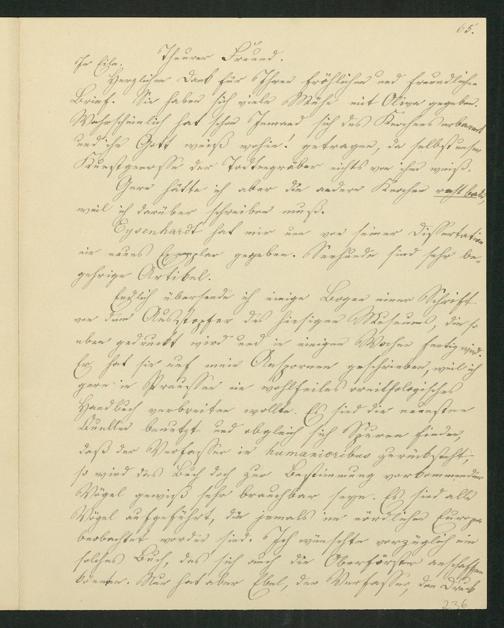 65.
In Eile.
Theurer Freund.
Herzlichen Dank für Ihren fröhlichen und freundlichen
Brief. Sie haben sich viele Mühe mit Oliva gegeben.
Wahrscheinlich hat schon Jemand sich des Knochens erbarmt
und ihn Gott weiß wohin! getragen, da selbst unser
Kunstgenosse der Todtengräber nichts von ihm weiß.
Gern hätte ich aber die andern Knochen recht bald,
weil ich darüber schreiben muß.
Eysenhardt hat mir nur von seiner Dissertation
ein neues Exemplar gegeben. Seehunde sind sehr be-
gehrige Artikel.
Endlich übersende ich einige Bogen einer Schrift
von dem Ausstopfer des hiesigen Museums, die so
eben gedruckt wird und in einigen Wochen fertig wird.
Er hat sie auf mein Anspornen geschrieben, weil ich
gern in Preussen ein wohlfeiles ornithologisches
Handbuch verbreiten wollte. Es sind die neuesten
Quellen benutzt und obgleich sich Spuren finden,
daß der Verfasser in humanioribus zurücksteht,
so wird das Buch doch zur Bestimmung vorkommender
Vögel gewiß sehr brauchbar seyn. Es sind alle
Vögel aufgeführt, die jemals im nördlichen Europa
beobachtet worden sind. Ich wünschte vorzüglich ein
solches Buch, das sich auch die Oberförster anschaffen
können. Nur hat aber Ebel, der Verfasser, den Druck
236